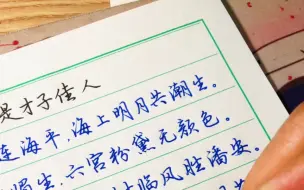 是才子佳人
连海平,海上明月共潮生。
生,六宫粉黛无颜色。
临风胜潘安。